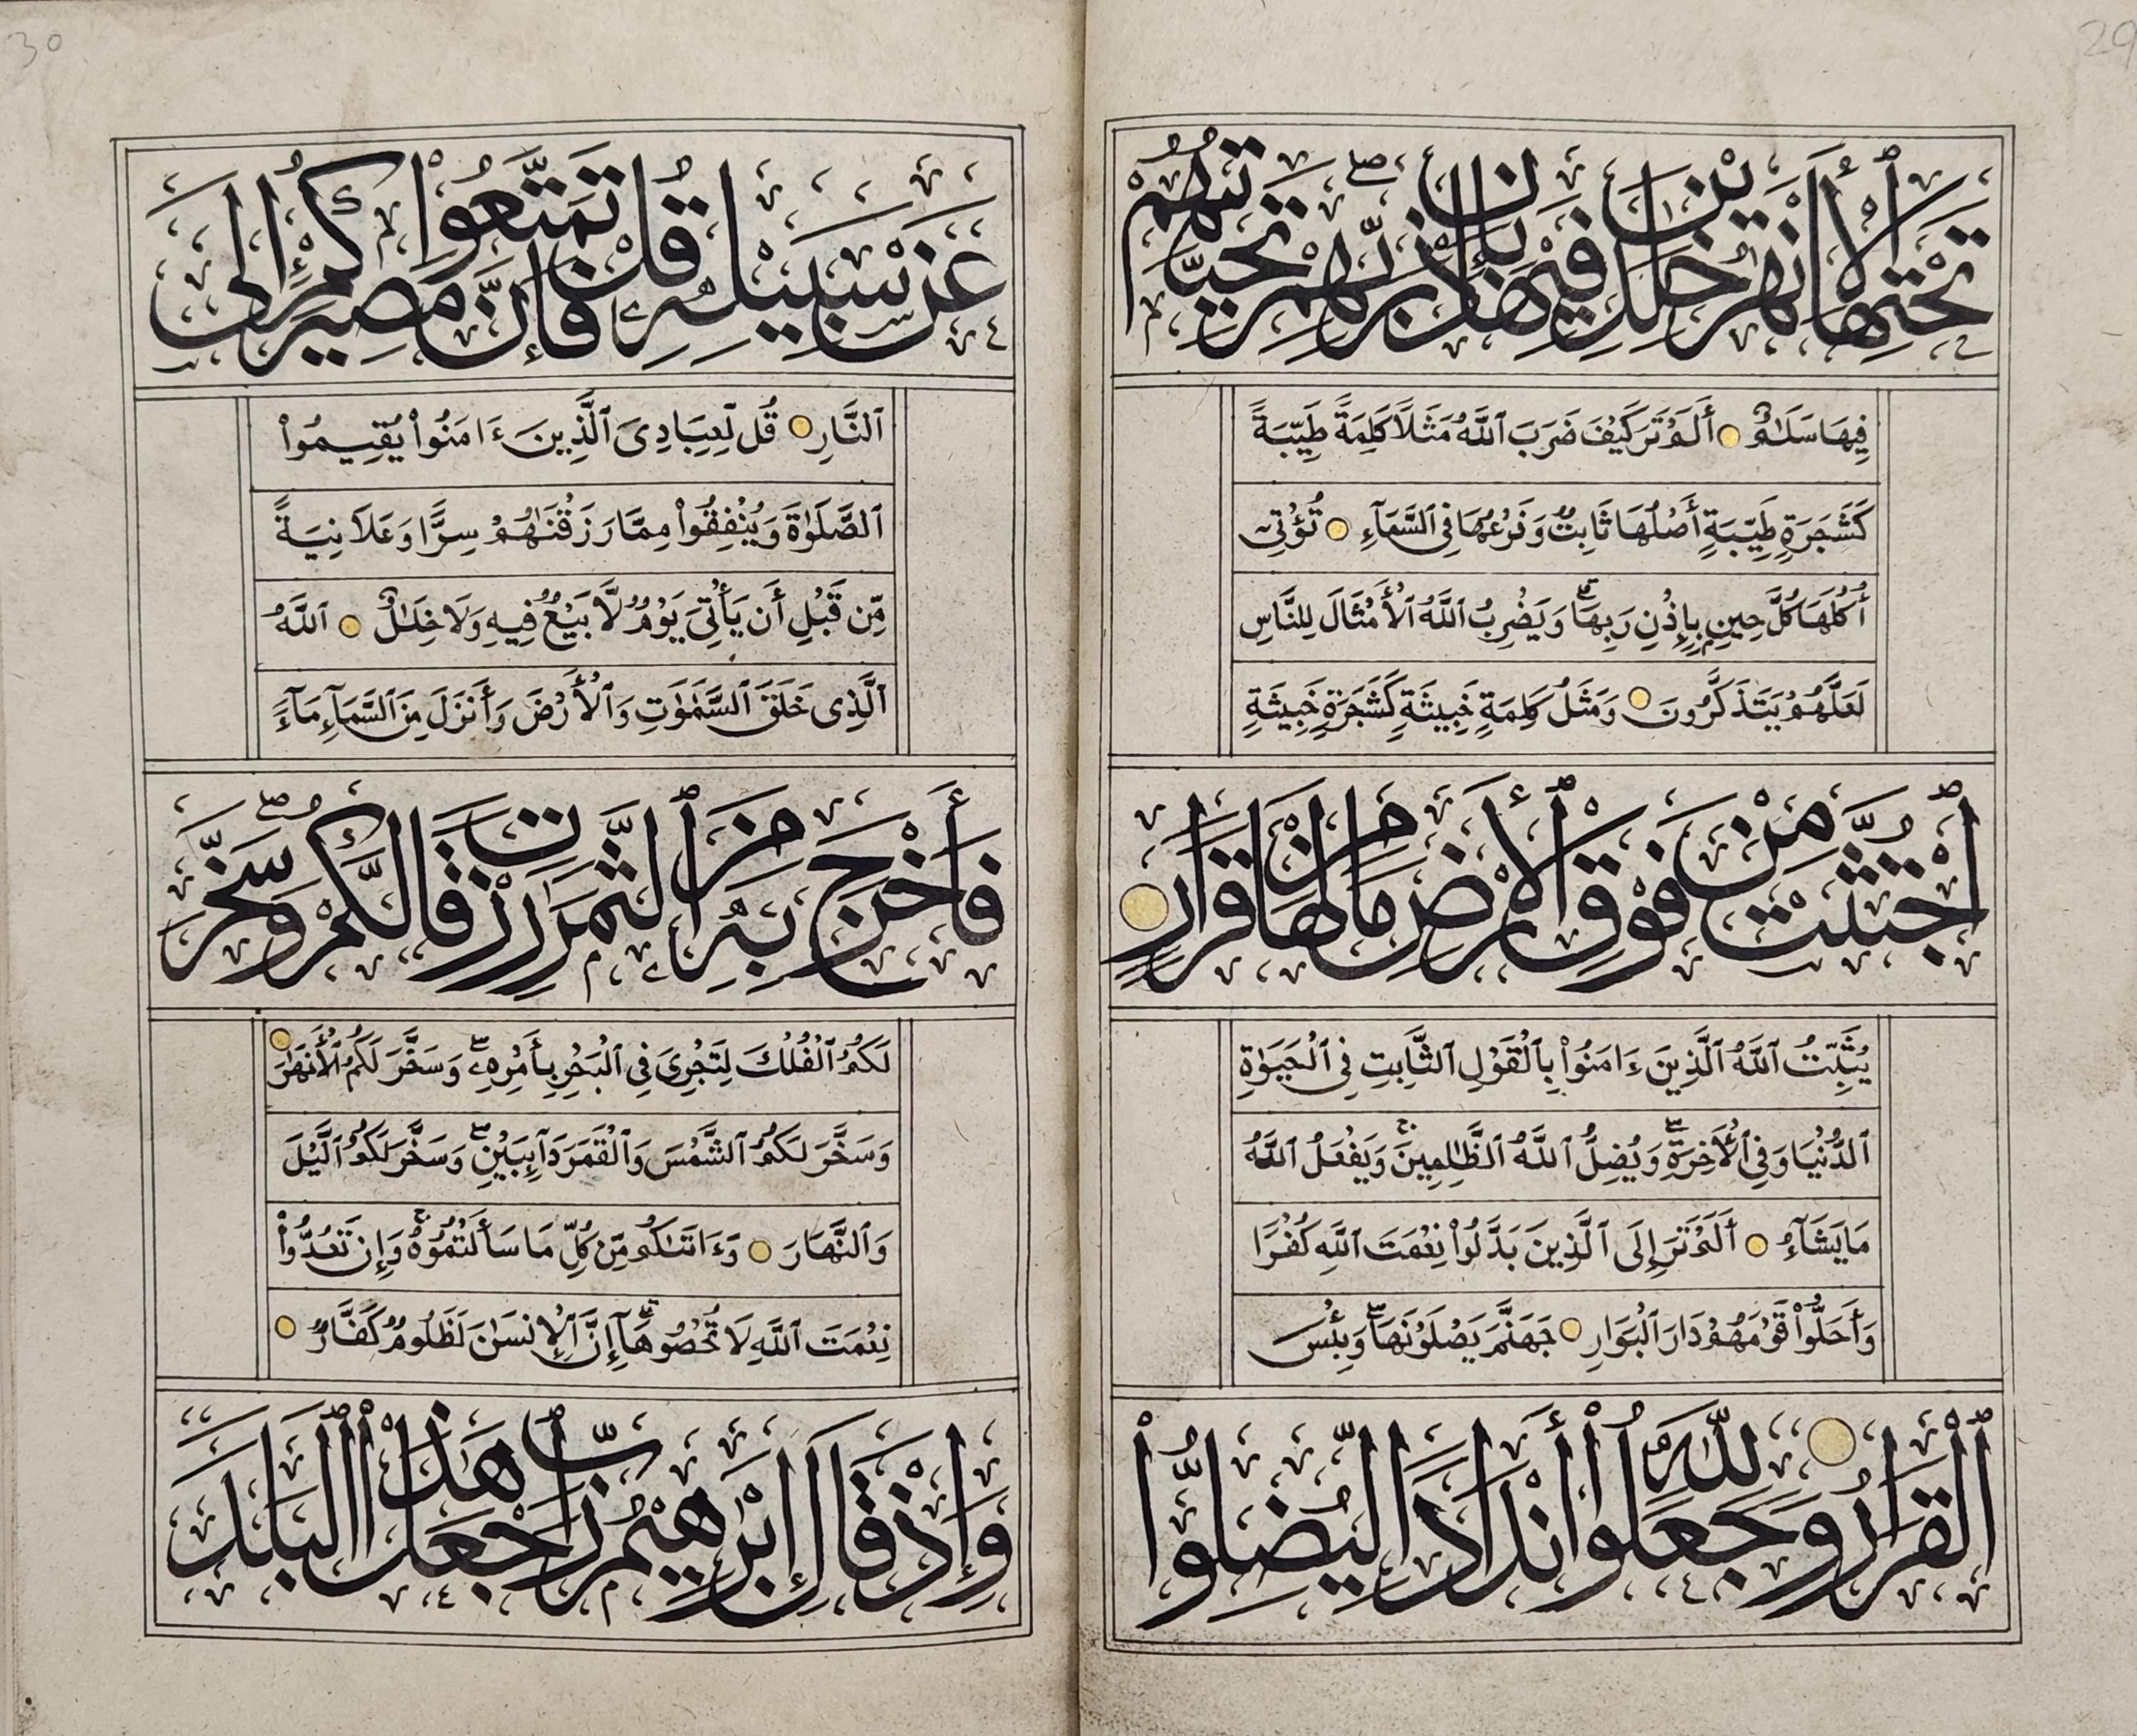 29
تَحْتِهَا ٱلْأَنْهَٰرُ خَٰلِدِينَ فِيهَا بِإِذْنِ رَبِّهِمْ تَحِيَّتُهُمْ
فِيهَا سَلَٰمٌ ۝ أَلَمْ تَرَ كَيْفَ ضَرَبَ ٱللَّهُ مَثَلًا كَلِمَةً طَيِّبَةً
كَشَجَرَةٍ طَيِّبَةٍ أَصْلُهَا ثَابِتٌ وَفَرْعُهَا فِى ٱلسَّمَآءِ ۝ تُؤْتِىٓ
أُكُلَهَا كُلَّ حِينٍ بِإِذْنِ رَبِّهَا ۗ وَيَضْرِبُ ٱللَّهُ ٱلْأَمْثَالَ لِلنَّاسِ
لَعَلَّهُمْ يَتَذَكَّرُونَ ۝ وَمَثَلُ كَلِمَةٍ خَبِيثَةٍ كَشَجَرَةٍ خَبِيثَةٍ
ٱجْتُثَّتْ مِن فَوْقِ ٱلْأَرْضِ مَا لَهَا مِن قَرَارٍ ۝
يُثَبِّتُ ٱللَّهُ ٱلَّذِينَ ءَامَنُوا۟ بِٱلْقَوْلِ ٱلثَّابِتِ فِى ٱلْحَيَوٰةِ
ٱلدُّنْيَا وَفِى ٱلْأَخِرَةِ ۖ وَيُضِلُّ ٱللَّهُ ٱلظَّٰلِمِينَ ۚ وَيَفْعَلُ ٱللَّهُ
مَا يَشَآءُ ۝ أَلَمْ تَرَ إِلَى ٱلَّذِينَ بَدَّلُوا۟ نِعْمَتَ ٱللَّهِ كُفْرًا
وَأَحَلُّوا۟ قَوْمَهُمْ دَارَ ٱلْبَوَارِ ۝ جَهَنَّمَ يَصْلَوْنَهَا ۖ وَبِئْسَ
ٱلْقَرَارُ ۝ وَجَعَلُوا۟ لِلَّهِ أَندَادًا لِّيُضِلُّوا۟
30
عَن سَبِيلِهِۦ ۗ قُلْ تَمَتَّعُوا۟ فَإِنَّ مَصِيرَكُمْ إِلَى
ٱلنَّارِ ۝ قُل لِّعِبَادِىَ ٱلَّذِينَ ءَامَنُوا۟ يُقِيمُوا۟
ٱلصَّلَوٰةَ وَيُنْفِقُوا۟ مِمَّا رَزَقْنَٰهُمْ سِرًّا وَعَلَانِيَةً
مِّن قَبْلِ أَن يَأْتِىَ يَوْمٌ لَّا بَيْعٌ فِيهِ وَلَا خِلَٰلٌ ۝ ٱللَّهُ
ٱلَّذِى خَلَقَ ٱلسَّمَٰوَٰتِ وَٱلْأَرْضَ وَأَنزَلَ مِنَ ٱلسَّمَآءِ مَآءً
فَأَخْرَجَ بِهِۦ مِنَ ٱلثَّمَرَٰتِ رِزْقًا لَّكُمْ ۖ وَسَخَّرَ
لَكُمُ ٱلْفُلْكَ لِتَجْرِىَ فِى ٱلْبَحْرِ بِأَمْرِهِۦ ۖ وَسَخَّرَ لَكُمُ ٱلْأَنْهَٰرَ ۝
وَسَخَّرَ لَكُمُ ٱلشَّمْسَ وَٱلْقَمَرَ دَآئِبَيْنِ ۖ وَسَخَّرَ لَكُمُ ٱلَّيْلَ
وَٱلنَّهَارَ ۝ وَءَاتَىٰكُم مِّن كُلِّ مَا سَأَلْتُمُوهُ ۚ وَإِن تَعُدُّوا۟
نِعْمَتَ ٱللَّهِ لَا تُحْصُوهَآ ۗ إِنَّ ٱلْإِنسَٰنَ لَظَلُومٌ كَفَّارٌ ۝
وَإِذْ قَالَ إِبْرَٰهِيمُ رَبِّ ٱجْعَلْ هَٰذَا ٱلْبَلَدَ